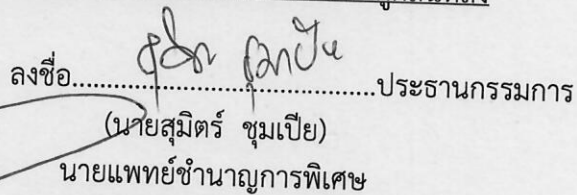 ลงชื่อ................................ประธานกรรมการ
(นายสุมิตร์ ชุมเปีย)
นายแพทย์ชำนาญการพิเศษ